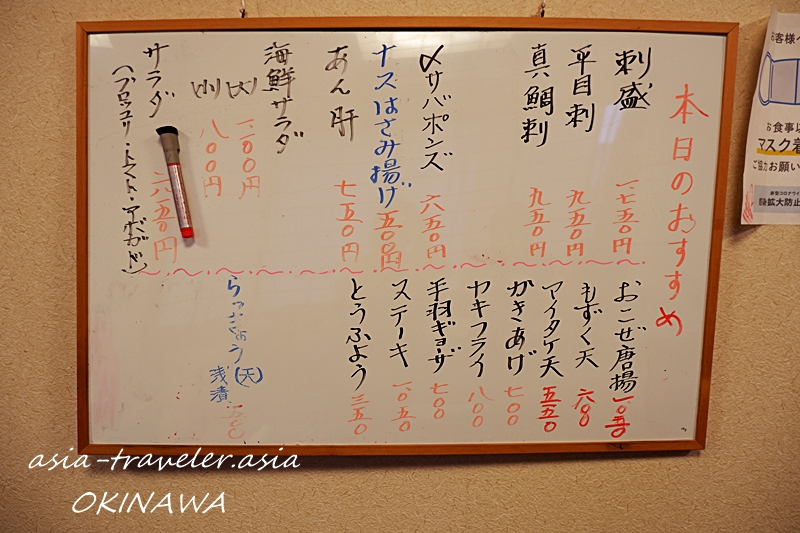 本日のおすすめ
刺盛 一、七五〇円
平目刺 九五〇円
真鯛刺 九五〇円
〆サバポンズ 六五〇円
ナスはさみ揚げ 五五〇円
あん肝 七五〇円
海鮮サラダ
(大) 一、一〇〇円
(小) 八〇〇円
サラダ 六五〇円
(ブロッコリ・トマト・アボガド)
おこぜ唐揚 一、〇五〇
もずく天 六〇〇
マイタケ天 五五〇
かきあげ 七〇〇
カキフライ 八〇〇
手羽ギョーザ 七〇〇
ステーキ 一、〇五〇
とうふよう 三五〇
らっきょう(天)
浅漬 五五〇
お客様へ
お食事以
マスク着
ご協力お願い
新型コロナウイ
感染拡大防止
asia-traveler.asia
OKINAWA